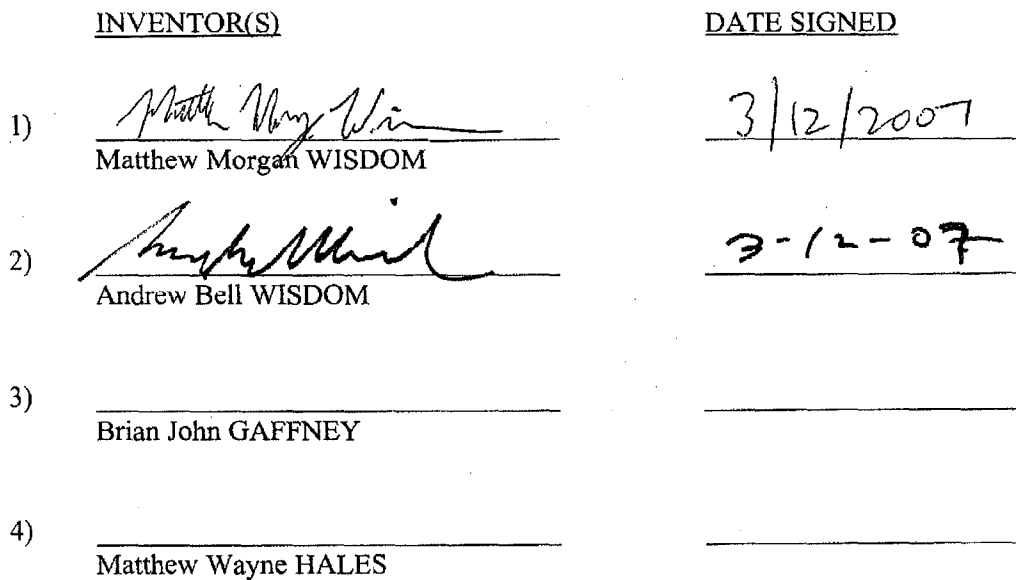 INVENTOR(S) DATE SIGNED
1) 3/12/2007
Matthew Morgan WISDOM
2) 3-12-07
Andrew Bell WISDOM
3)
Brian John GAFFNEY
4)
Matthew Wayne HALES